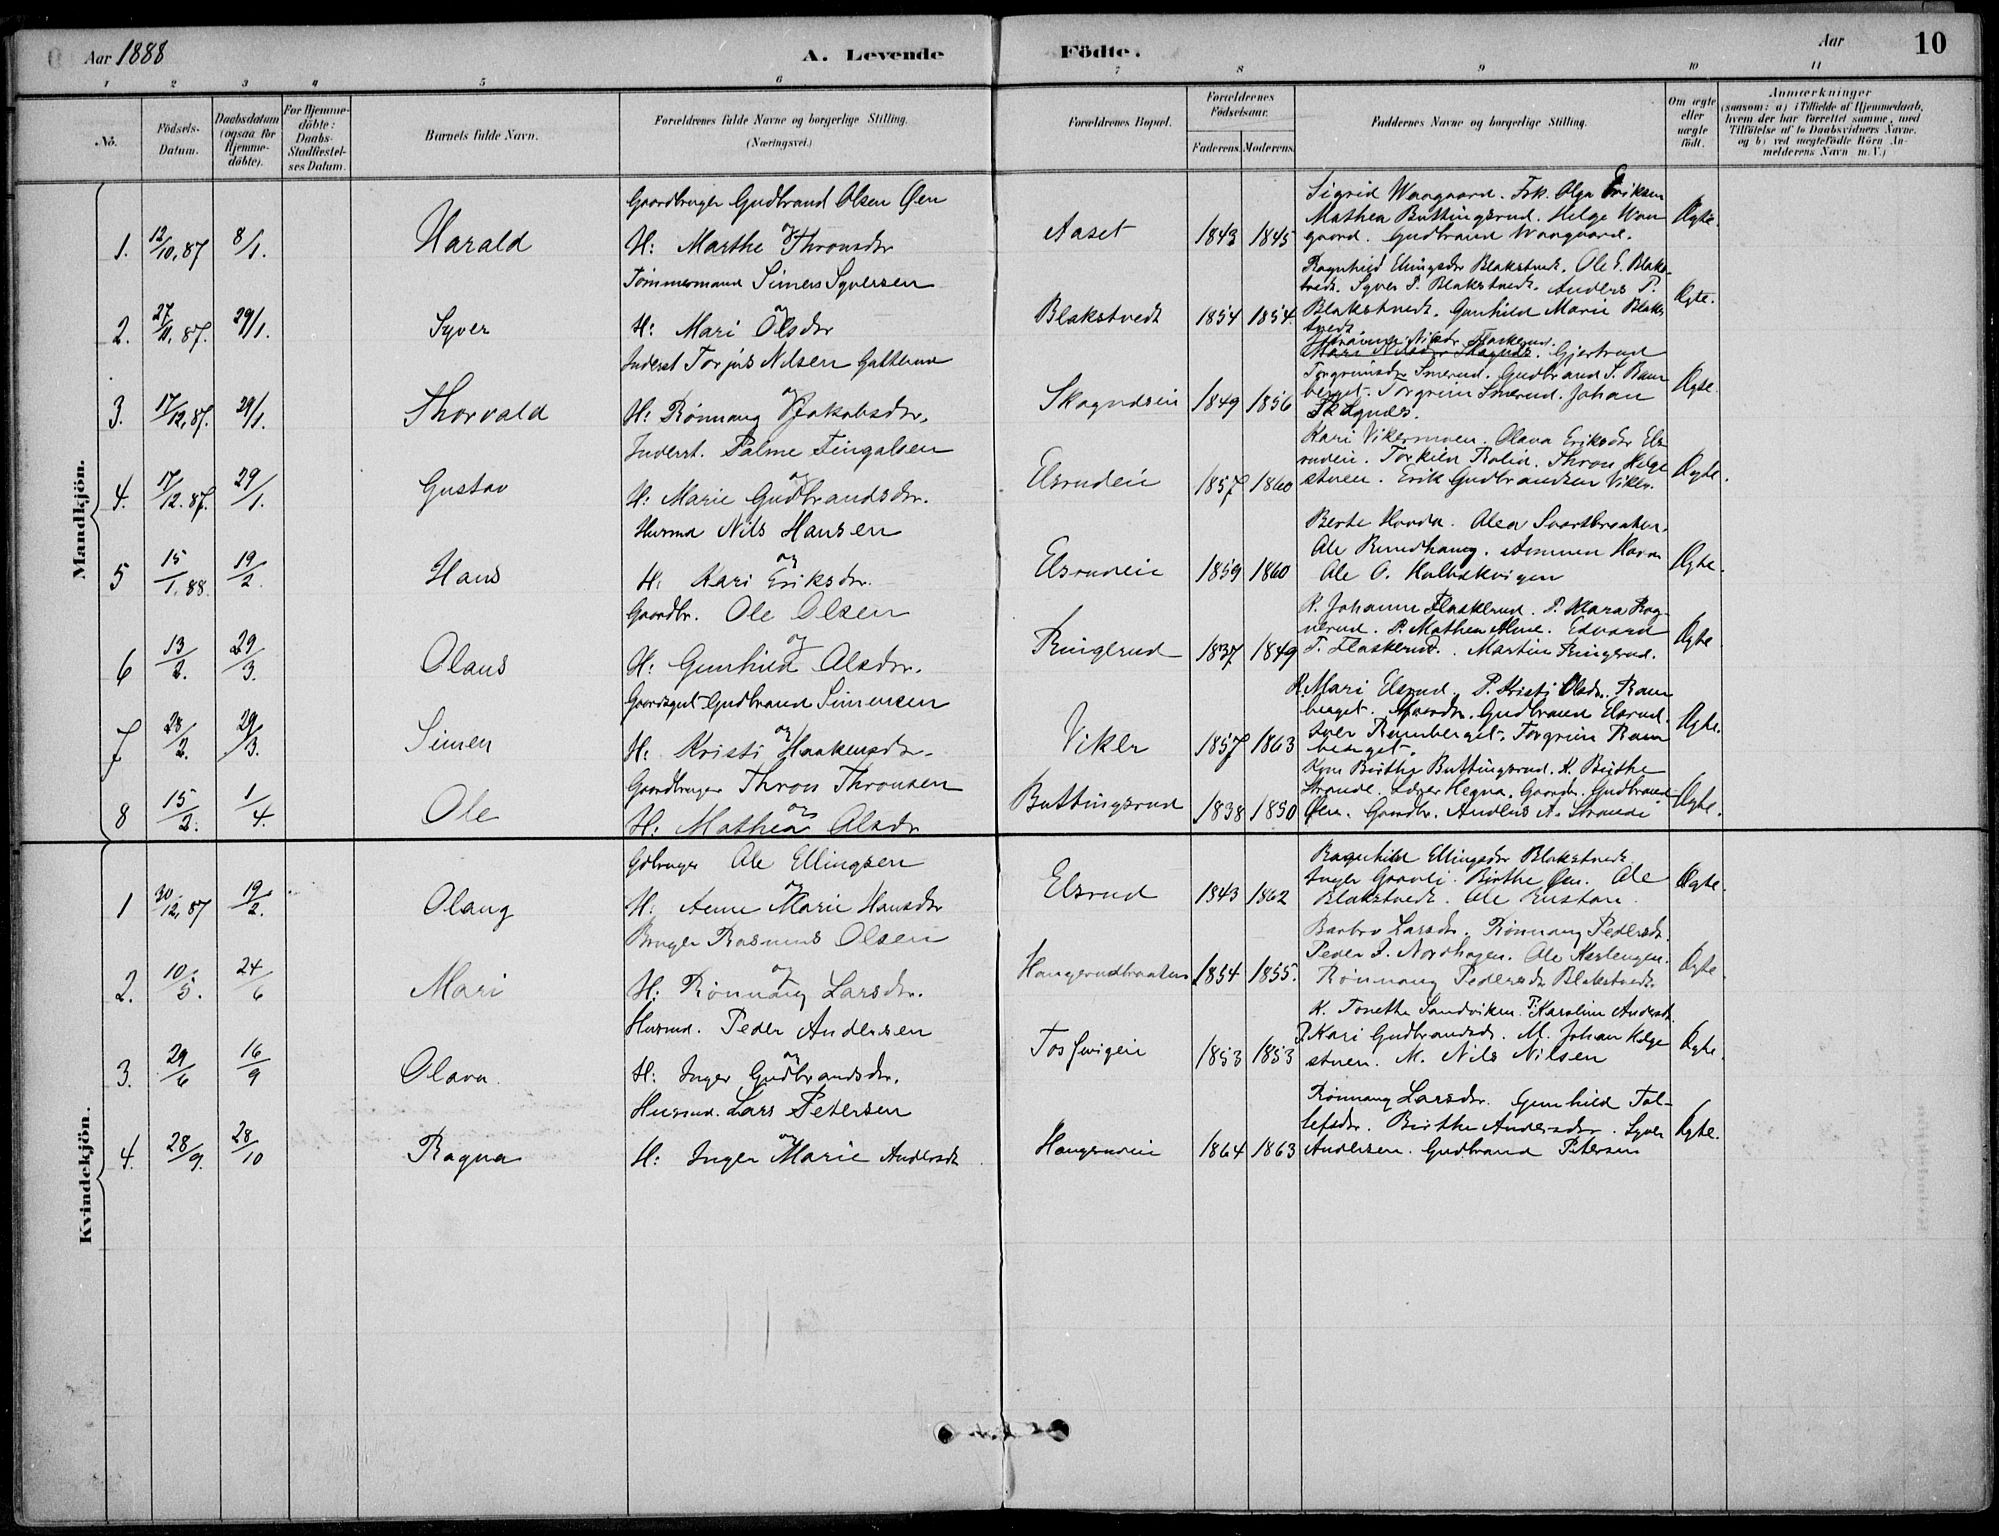 Aar 1888
A. Levende Födte.
Aar
10
1 2 3 4 5 6 7 8 9 10 11
No.
Födsels-Datum.
Daabsdatum (ogsaa for Hjemme-döbte).
For Hjemme-döbte: Daabs-Stadfæstel-ses Datum.
Barnets fulde Navn.
Forældrenes fulde Navne og borgerlige Stilling.
(Næringsvei.)
Forældrenes Bopæl.
Forældrenes Födselsaar.
Faderens. Moderens.
Faddernes Navne og borgerlige Stilling.
Om ægte eller uægte födt.
Anmærkninger
(saasom: a) i Tilfælde af Hjemmedaab,
hvem der har forrettet samme, med
Tilföielse af to Daabsvidners Navne,
og b) ved uægtefödte Börn An-
melderens Navn m. V.)
Mandkjön.
1. 12/10,87 8/1. Harald
Gaardbruger Gudbrand Olsen Øen
og
H: Marthe Thronsdr
Aaset 1843 1845
Sigrid Waagaard. Frk. Olga Eriksen
Mathea Buttingsrud. Helge Waa
gaard. Gudbrand Waagaard.
Ægte.
2. 27/11,87. 29/1. Syver
Tømmermand Simers Syversen
og
H: Mari Olsdr
Blakstvedt 1854 1854.
Ragnhild Ellingsdr Blakstvedt. Ole E. Blaks-
tvedt. Syver P. Blakstvedt. Anders P.
Blakstvedt. Gunhild Marie Blaks
tvedt.
Ægte.
3. 17/12,87. 29/1. Thorvald
Inderst Torjus Nilsen Gulsrud
og
H: Rønnaug Jakobsdr.
Skagnæsei 1849 1856
Gjertrud
Torgrimsdr Smerud. Gudbrand S. Ram
berget. Torgrim Smerud. Johan
Skagnæs.
Ægte.
4. 17/12.87. 29/1. Gustav
Inderst. Palme Fingalsen
og
H: Marie Gudbrandsdr.
Elsrudeie 1857 1860
Kari Vikermoen. Olava Eriksdr Els
rudeie. Torkild Rolid. Thron Helge
stuen. Erik Gudbrandsen Viker.
Ægte.
5 15/1,88. 19/2. Hans
Husmd Nils Hansen
og
H: Kari Eriksdr.
Elsrudeie 1859 1860
Berte Hovde. Olea Svartbraaten.
Ole Rundhaug.
Ole O. Kalvakvigen
Ægte.
6 13/2. 29/3. Olaus
Gaardbr. Ole Olsen
og
H: Gunhild Olsdr.
Ringerud 1837 1849
K. Johanne Flaskerud. P. Klara Rog-
nerud. P. Mathea Alme. Edvard
T. Flaskerud. Martin Ringerud.
Ægte
7 28/2. 29/3. Simen
Gaardsgut Gudbrand Simensen
og
H: Kristi Haakensdr.
Viker 1857 1863
K. Mari Elsrud. P. Kristi Olsdr. Ram
berget. Gaardbr. Gudbrand Elsrud.
Iver Ramberget. Torgrim Ram
berget.
Ægte.
8 15/2. 1/4. Ole
Gaardbruger Thron Thronsen
og
H: Mathea Olsdr
Buttingsrud 1838 1850
Kone Birthe Buttingsrud. K. Birthe
Strande. Lærer Hegna. Gaardbr. Gudbrand
Øen. Gaardbr. Anders A. Strande
Ægte.
Kvindekjön.
1 30/12,87 19/2. Olaug
Gdbruger Ole Ellingsen
og
H. Anne Marie Hansdr
Elsrud 1843 1862
Ragnhild Ellingsdr Blakstvedt.
Inger Gravli. Birthe Øen. Ole
Blakstvedt. Ole Enstan.
Ægte.
2. 10/5. 24/6 Mari
Bruger Rasmus Olsen
og
H: Rønnaug Larsdr.
Haugerudbraaten 1854 1855.
Barbro Larsdr. Rønnaug Pedersdr.
Peder J. Nordhagen. Ole Kastengen.
Rønnaug Pedersdr Blakstvedt.
Ægte.
3. 29/6 16/9 Olava.
Husmd. Peder Andersen
og
H: Inger Gudbrandsdr.
Tosfuvigeie 1853 1853
K. Tonetta Sandviken. P: Karoline Andersdr.
P. Kari Gudbrandsdr. M. Johan Helge
stuen. M. Nils Nilsen
Ægte.
4. 28/9. 28/10 Ragna
Husmd. Lars Petersen
og
H: Inger Marie Andersdr
Haugerudeie 1864 1863
Rønnaug Larsdr. Gunhild Tol-
lefsdr. Birthe Andersdr. Syver
Andersen. Gudbrand Petersen
Ægte.